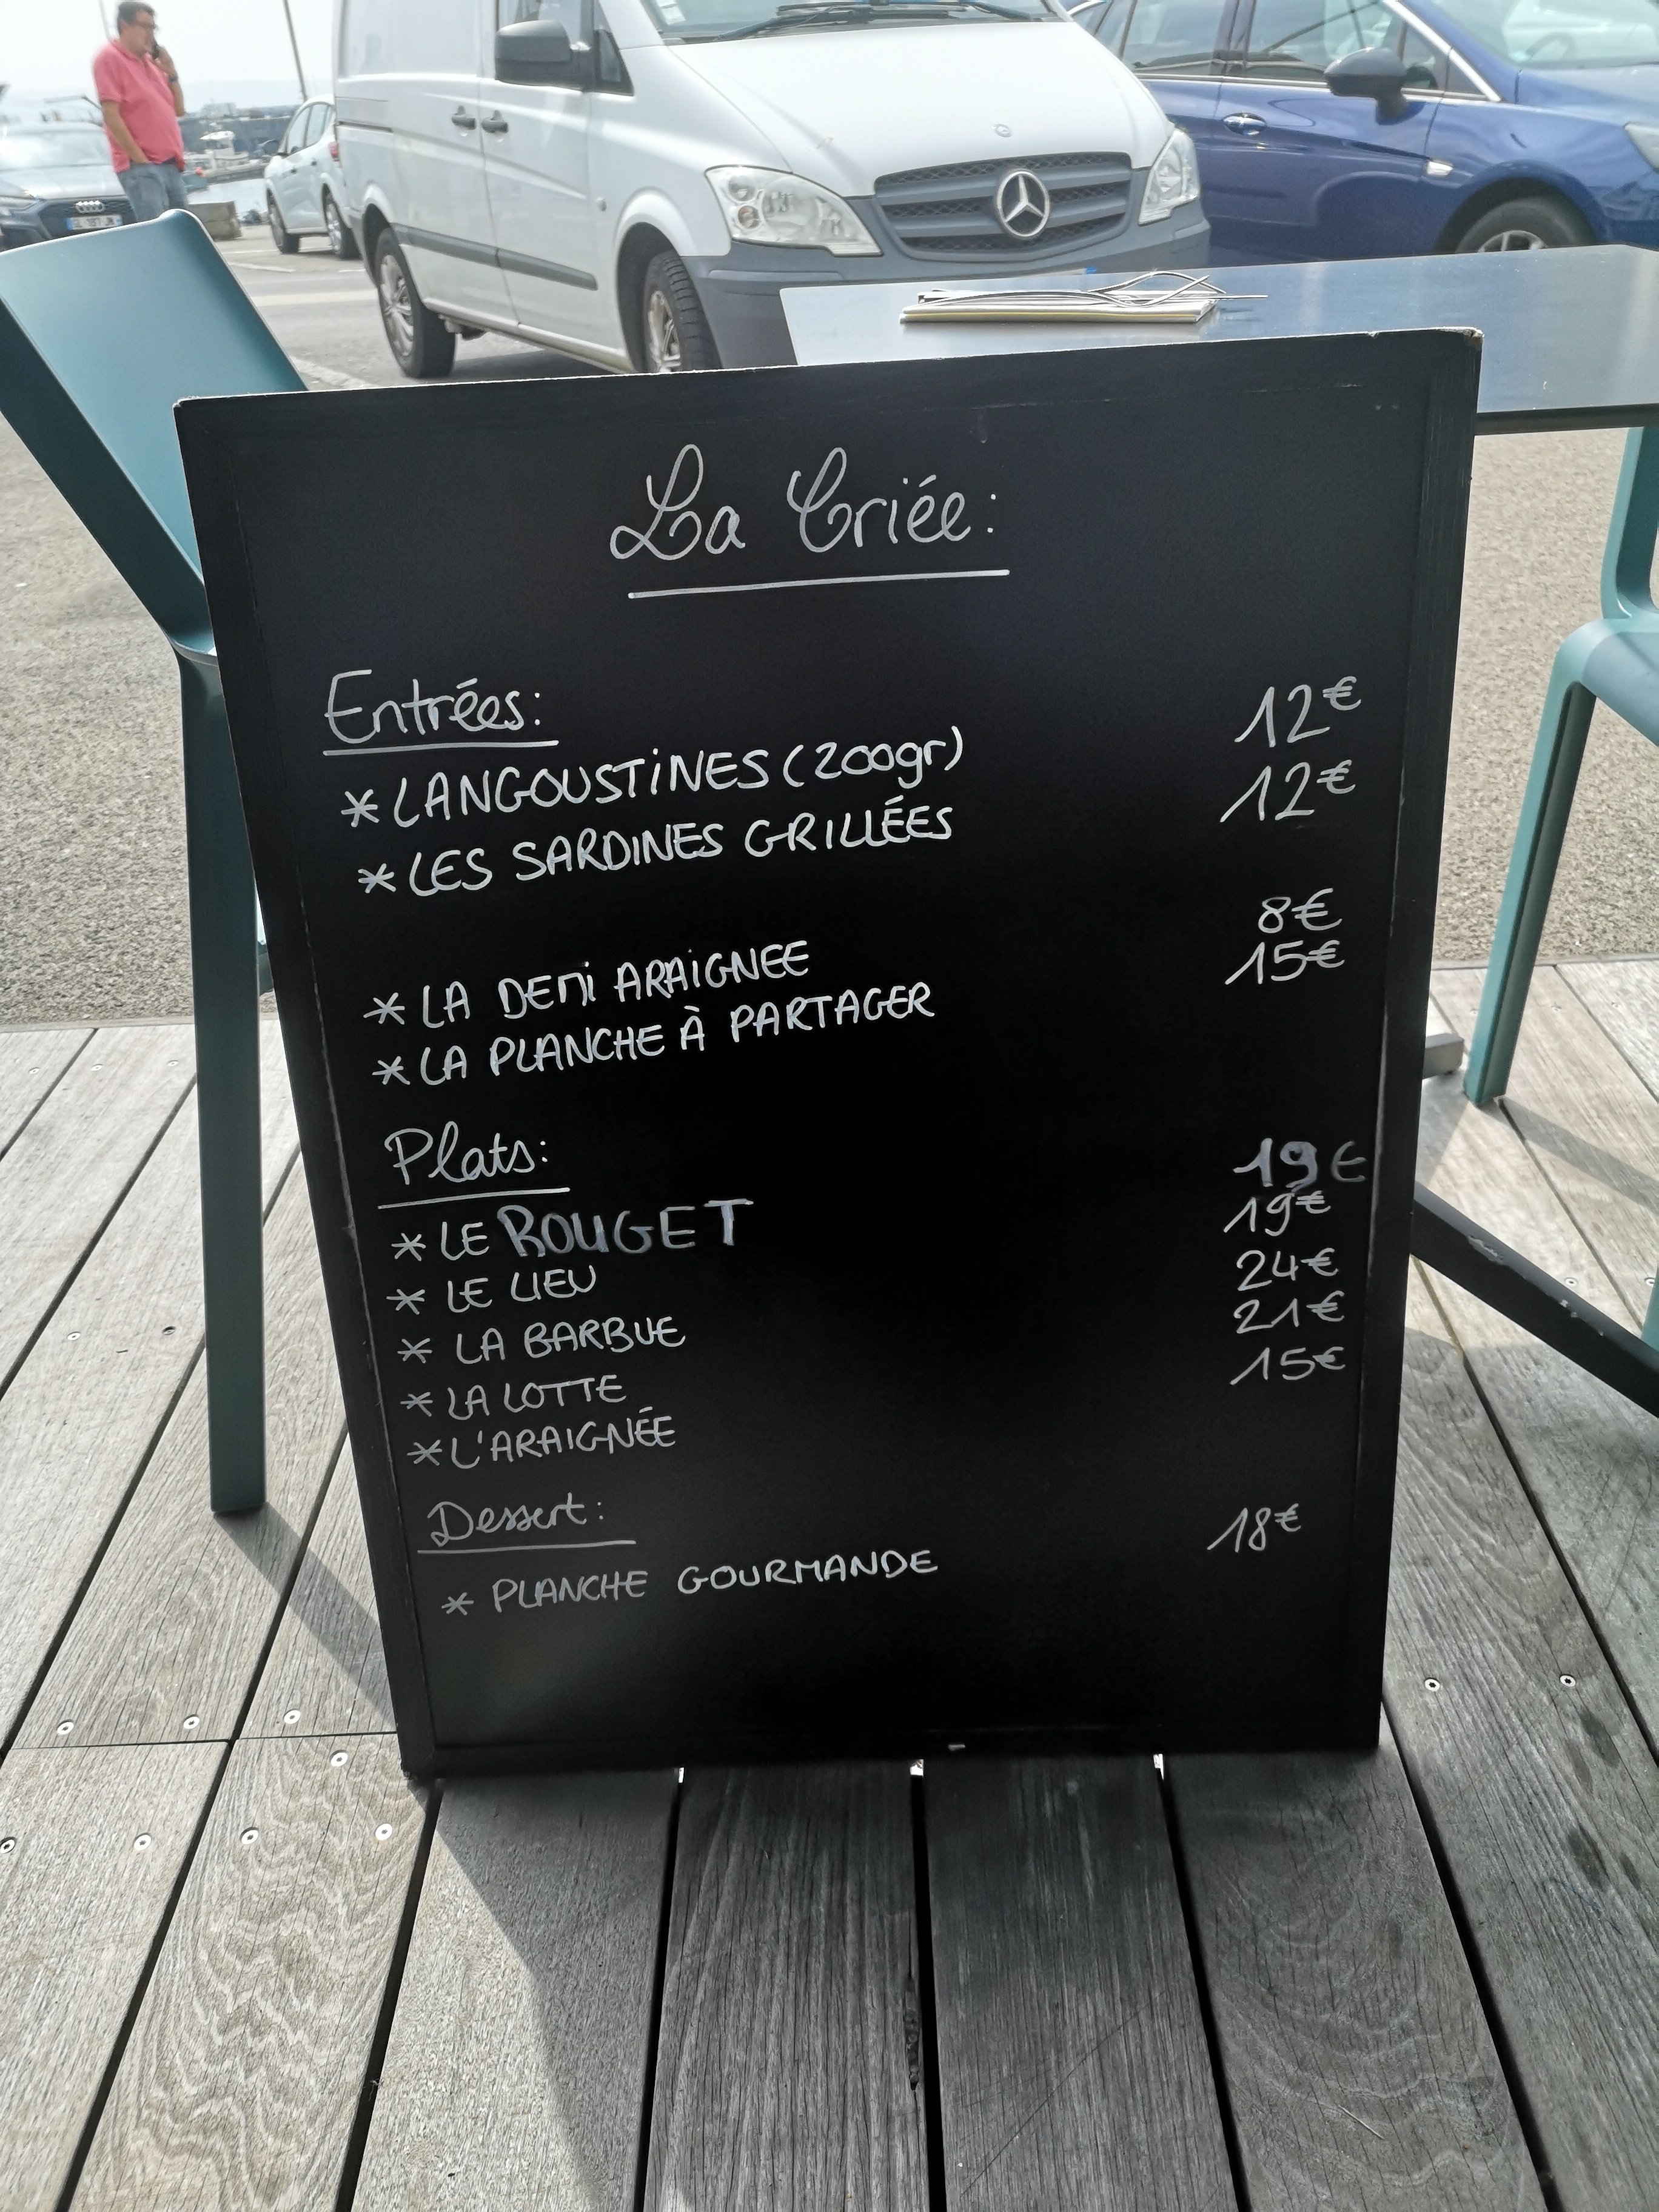 La Criée:
Entrées:
* LANGOUSTINES (200gr) 12€
* LES SARDINES GRILLÉES 12€
* LA DEMI ARAIGNEE 8€
* LA PLANCHE À PARTAGER 15€
Plats:
* LE ROUGET 19€
* LE LIEU 19€
* LA BARBUE 24€
* LA LOTTE 21€
* L'ARAIGNÉE 15€
Dessert:
* PLANCHE GOURMANDE 18€